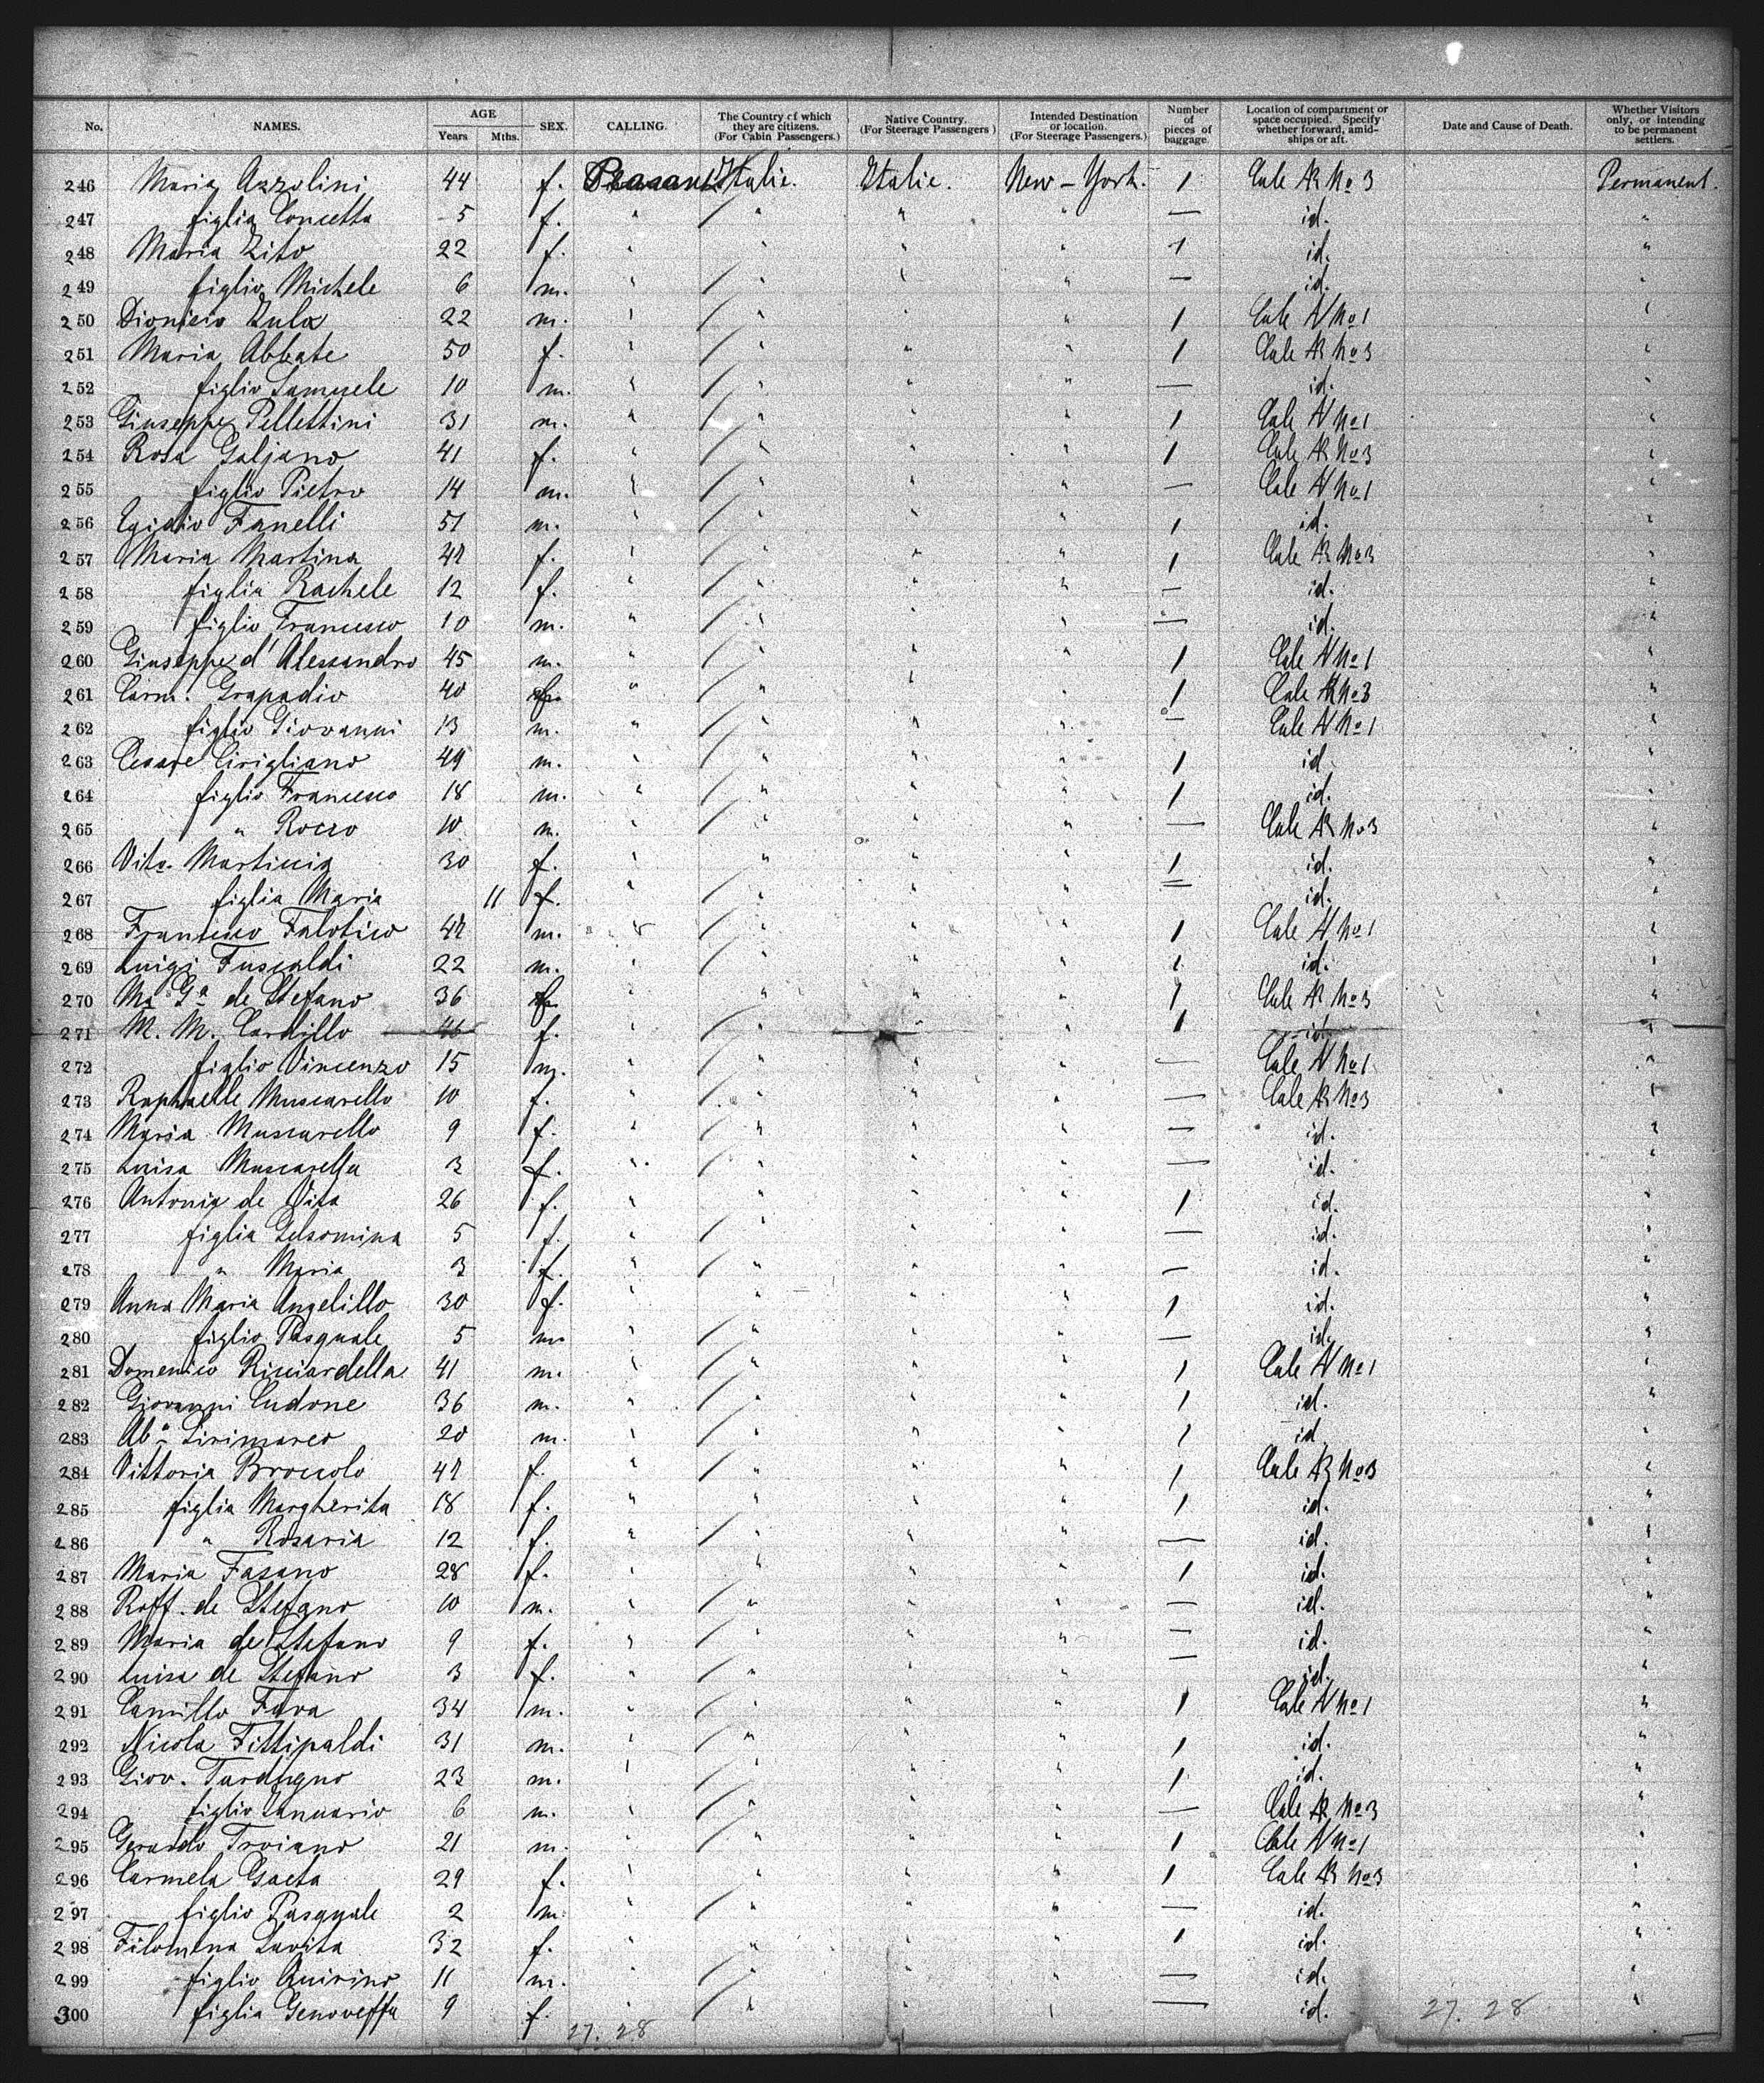 No. NAMES. AGE Years Mths. SEX. CALLING. The Country of which they are citizens. (For Cabin Passengers.) Native Country. (For Steerage Passengers) Intended Destination or location. (For Steerage Passengers.) Number of pieces of baggage. Location of compartment or space occupied. Specify whether forward, amidships or aft. Date and Cause of Death. Whether Visitors only, or intending to be permanent settlers.
246 Maria Azzolini 44 f. Italie. Italie. New-York. 1 Cale AR No 3 Permanent.
247 figlia Concetta 5 f. " " " " — id. "
248 Maria Zito 22 f. " " " " 1 id. "
249 figlio Michele 6 m. " " " " — id. "
250 Dionisio Zula 22 m. " " " " 1 Cale AV No 1 "
251 Maria Abbate 50 f. " " " " 1 Cale AR No 3 "
252 figlio Samuele 10 m. " " " " — id. "
253 Giuseppe Pellettini 31 m. " " " " 1 Cale AV No 1 "
254 Rosa Galjano 41 f. " " " " 1 Cale AR No 3 "
255 figlio Pietro 14 m. " " " " — Cale AV No 1 "
256 Egidio Fanelli 51 m. " " " " 1 id. "
257 Maria Martina f. " " " " 1 Cale AR No 3 "
258 figlia Rachele 12 f. " " " " — id. "
259 figlio Francesco 10 m. " " " " — id. "
260 Giuseppe d'Alessandro 45 m. " " " " 1 Cale AV No 1 "
261 Carm. Grapadio 40 " " " " 1 Cale AR No 3 "
262 figlio Giovanni 13 m. " " " " — Cale AV No 1 "
263 Cesare Cirigliano 49 m. " " " " 1 id. "
264 figlio Francesco 18 m. " " " " 1 id. "
265 " Rocco 10 m. " " " " — Cale AR No 3 "
266 Vita Marticcia 30 f. " " " " 1 id. "
267 figlia Maria 11 f. " " " " — id. "
268 Francesco Falotico m. " " " " 1 Cale AV No 1 "
269 Luigi Fuscaldi 22 m. " " " " 1 id. "
270 Ma Ga de Stefano 36 " " " " 1 Cale AR No 3 "
271 M. M. Cardillo 46 f. " " " " 1 id. "
272 figlio Vincenzo 15 m. " " " " — Cale AV No 1 "
273 Raphaelle Muscarello 10 f. " " " " — Cale AR No 3 "
274 Maria Muscarello 9 f. " " " " — id. "
275 Luisa Muscarella 3 f. " " " " — id. "
276 Antonia de Vita 26 f. " " " " 1 id. "
277 figlia Gelsomina 5 f. " " " " — id. "
278 " Maria 3 f. " " " " — id. "
279 Anna Maria Angelillo 30 f. " " " " 1 id. "
280 figlio Pasquale 5 m. " " " " — id. "
281 Domenico Ricciardella 41 m. " " " " 1 Cale AV No 1 "
282 Giovanni Cudone 36 m. " " " " 1 id. "
283 Sirimarco 20 m. " " " " 1 id. "
284 Vittoria Broccolo f. " " " " 1 Cale AR No 3 "
285 figlia Margherita 18 f. " " " " 1 id. "
286 " Rosaria 12 f. " " " " — id. "
287 Maria Fasano 28 f. " " " " 1 id. "
288 Raff. de Stefano 10 m. " " " " — id. "
289 Maria de Stefano 9 f. " " " " — id. "
290 Luisa de Stefano 3 f. " " " " — id. "
291 Camillo Fava 34 m. " " " " 1 Cale AV No 1 "
292 Nicola Fittipaldi 31 m. " " " " 1 id. "
293 Giov. Tardugno 23 m. " " " " 1 id. "
294 figlio Januario 6 m. " " " " — Cale AR No 3 "
295 Gerardo Troiano 21 m. " " " " 1 Cale AV No 1 "
296 Carmela Gaeta 29 f. " " " " 1 Cale AR No 3 "
297 figlio Pasquale 2 m. " " " " — id. "
298 Filomena Lavita 32 f. " " " " 1 id. "
299 figlio Quirino 11 m. " " " " — id. "
300 figlia Genoveffa 9 f. " " " " — id. "
27. 28 27. 28